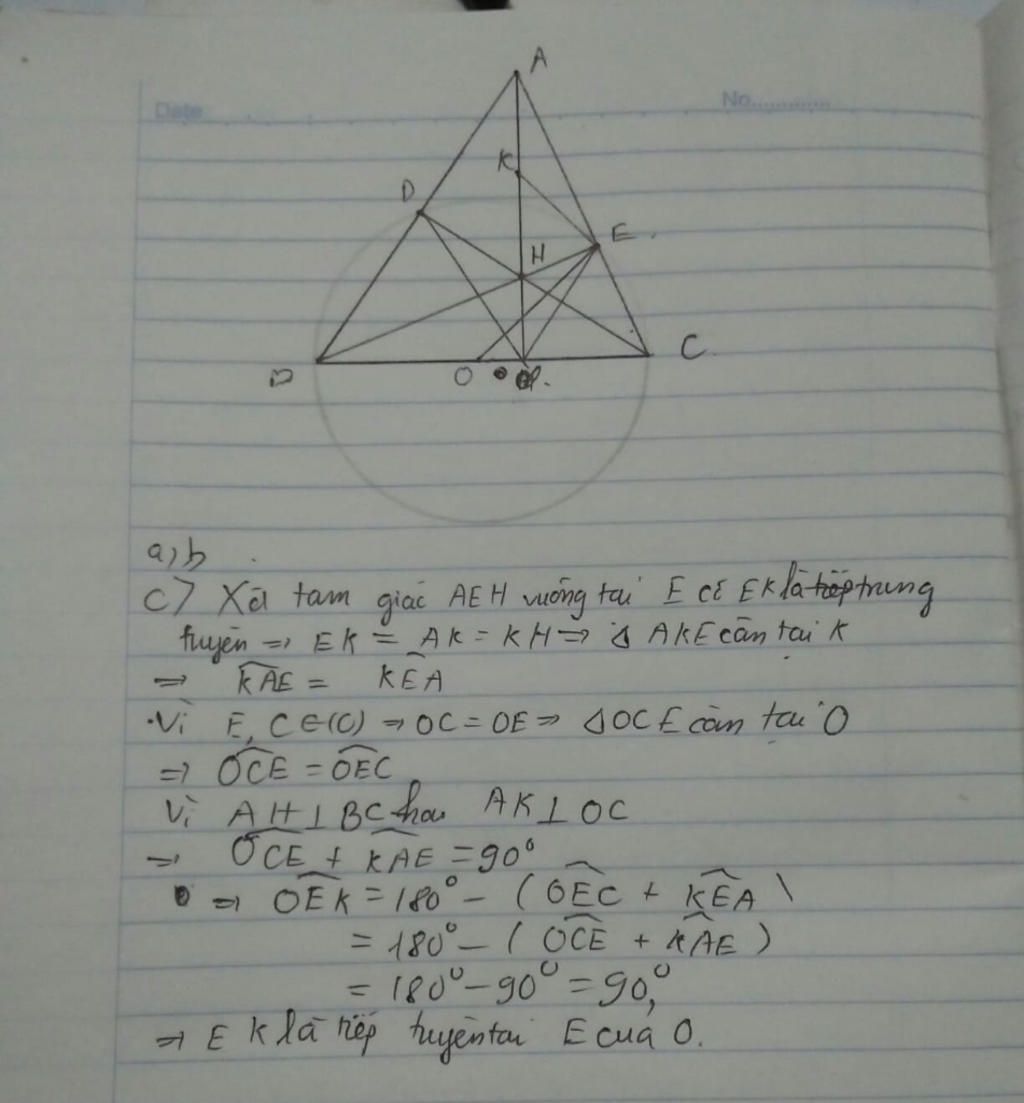 Date
No.............
A
K
D
E
H
C
O
a, b
c) Xét tam giác AEH vuông tại E có EK là trung
tuyến => EK = AK = KH => Δ AKE cân tại K
=> KAE = KEA
.Vì E, C ∈ (O) => OC = OE => ΔOCE cân tại O
=> OCE = OEC
Vì AH ⊥ BC hay AK ⊥ OC
=> OCE + KAE = 90°
=> OEK = 180° - (OEC + KEA)
= 180° - (OCE + KAE)
= 180° - 90° = 90°
=> EK là tiếp tuyến tại E của O.